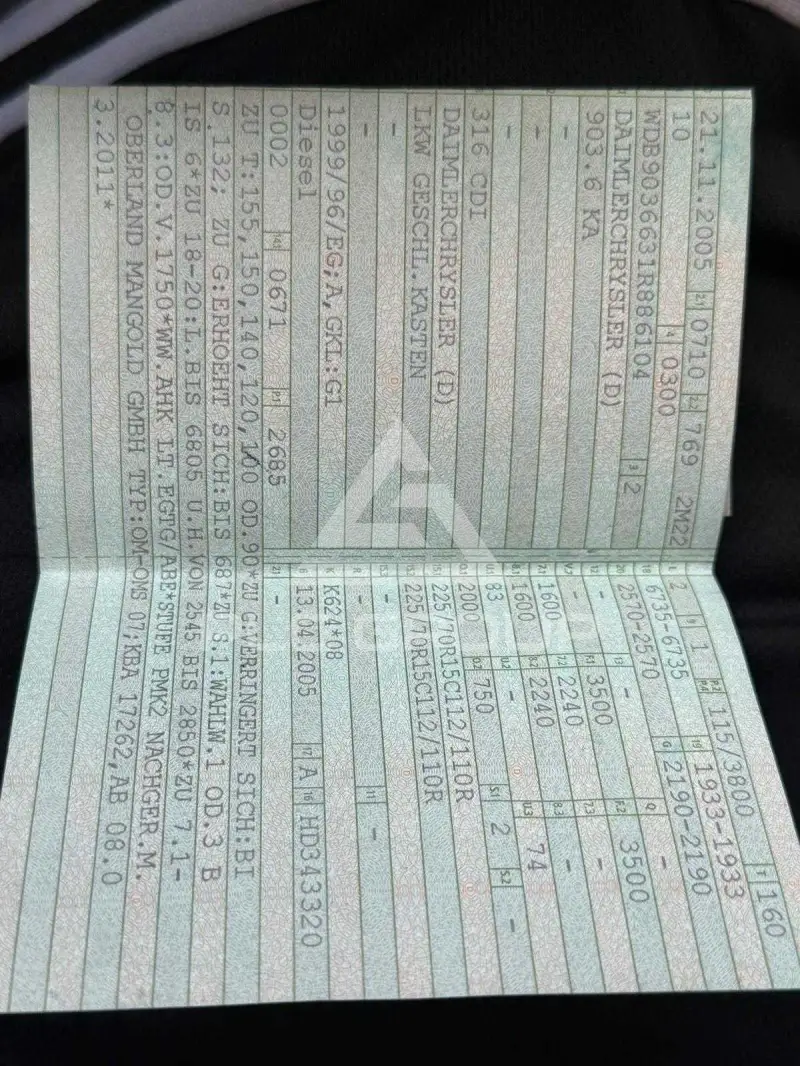 21.11.2005 2.1 0710 2.2 769 2M22
10 4 0300
WDB9036631R886104 3 2
DAIMLERCHRYSLER (D)
903.6 KA
-
-
-
316 CDI
DAIMLERCHRYSLER (D)
LKW GESCHL.KASTEN
-
-
1999/96/EG;A,GKL:G1
Diesel
0002 14 0671 P.1 2685
L 2 9 1 P.2 P.4 115/3800 T 160
18 6735-6735 19 1933-1933
20 2570-2570 G 2190-2190
12 - 13 - Q -
V.7 - F.1 3500 F.2 3500
7.1 1600 7.2 2240 7.3 -
8.1 1600 8.2 2240 8.3 -
U.1 83 U.2 - U.3 74
O.1 2000 O.2 750 S.1 2 S.2 -
15.1 225/70R15C112/110R
15.2 225/70R15C112/110R
15.3 -
R - 11 -
K K624*08
6 13.04.2005 17 A 16 HD343320
21 -
ZU T:155,150,140,120,100 OD.90*ZU G:VERRINGERT SICH:BI
S.132; ZU G:ERHOEHT SICH:BIS 687*ZU S.1:WAHLW.1 OD.3 B
IS 6*ZU 18-20:L.BIS 6805 U.H.VON 2545 BIS 2850*ZU 7.1-
8.3:OD.V.1750*WW.AHK LT.EGTG/ABE*STUFE PMK2 NACHGER.M.
OBERLAND MANGOLD GMBH TYP:OM-ONS 07;KBA 17262,AB 08.0
3.2011*